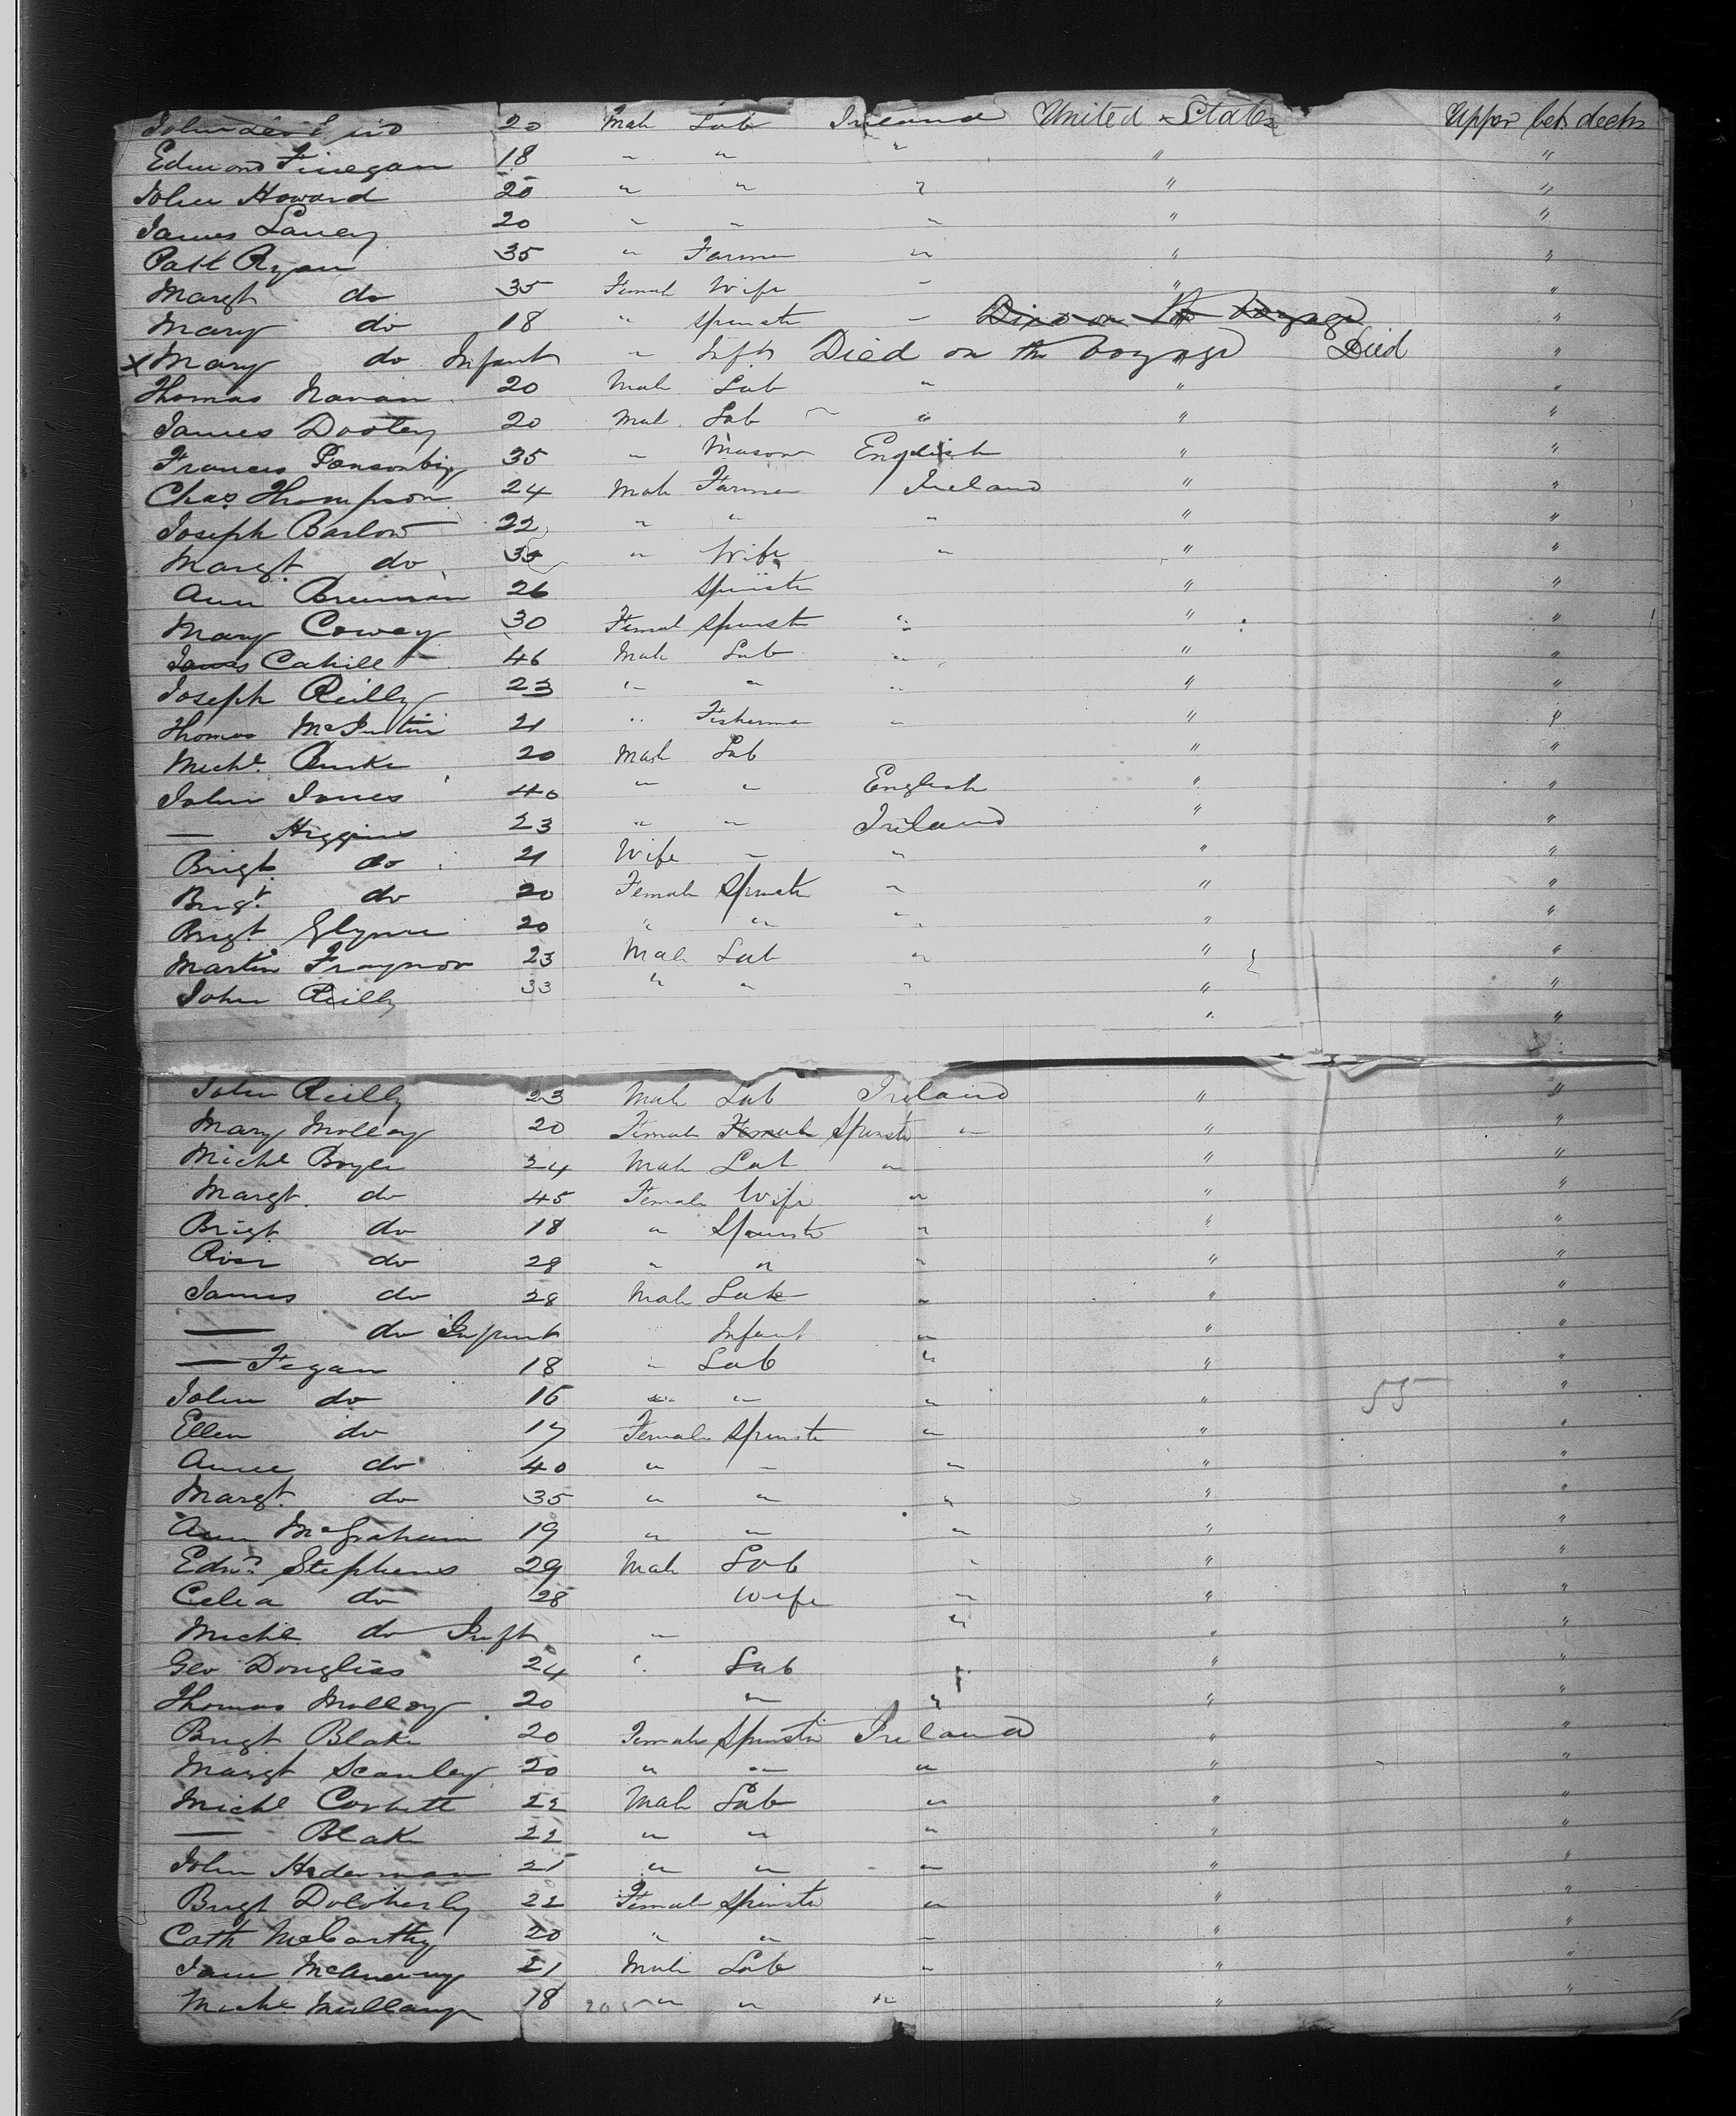 20 Male Lab Ireland United States Upper bet decks
Edmond Finegan 18 " " " " "
John Howard 20 " " " " "
James Laney 20 " " " " "
Patt Ryan 35 " Farmer " " "
Margt do 35 Female Wife " " "
Mary do 18 " Spinster " Died on the voyage "
x Mary do Infant " Inft Died on the voyage " Died "
Thomas Navan 20 Male Lab " " "
James Dooley 20 Male Lab " " "
Frances Ponsonby 35 " Mason English " "
Chas Thompson 24 Male Farmer Ireland " "
Joseph Barlow 22 " " " " "
Margt do 35 " Wife " " "
Ann Brennan 26 Spinster " "
Mary Cowey 30 Femal Spinst " " "
James Cahill 46 Male Lab " " "
Joseph Reilly 23 " " " " "
Thomas 21 " Fisherman " " "
Michl Burke 20 Male Lab " "
John Jones 40 " " English " "
— Higgins 23 " " Ireland " "
Brigt do 21 Wife " " " "
Brigt do 20 Female Spinster " " "
Brigt Glynn 20 " " " " "
Martin Traynor 23 Male Lab " " "
John Reilly 33 " " " " "
" "
John Reilly 23 Male Lab Ireland " "
Mary Molloy 20 Female Female Spinster " " "
Michl Boyle 24 Male Lab " " "
Margt do 45 Female Wife " " "
Brigt do 18 " Spinster " " "
Rose do 28 " " " " "
James do 28 Male Lab " " "
— do Infant Infant " " "
— Fegan 18 " Lab " " "
John do 16 " " " " 55 "
Ellen do 17 Female Spinster " " "
Anne do 40 " " " " "
Margt do 35 " " " " "
Ann McGraham 19 " " " " "
Edwd Stephens 29 Male Lab " " "
Celia do 28 Wife " " "
Michl do Inft " " " "
Geo Dougliss 24 " Lab " " "
Thomas Molloy 20 " " " "
Brigt Blake 20 Female Spinster Ireland " "
Margt Scanley 20 " " " " "
Michl Corbett 22 Male Lab " " "
— Blake 22 " " " " "
John Hederman 21 " " " " "
Brigt Doloherty 22 Female Spinster " " "
Cath McCarthy 20 " " " " "
21 Male Lab " " "
Michl 18 205 " " " " "